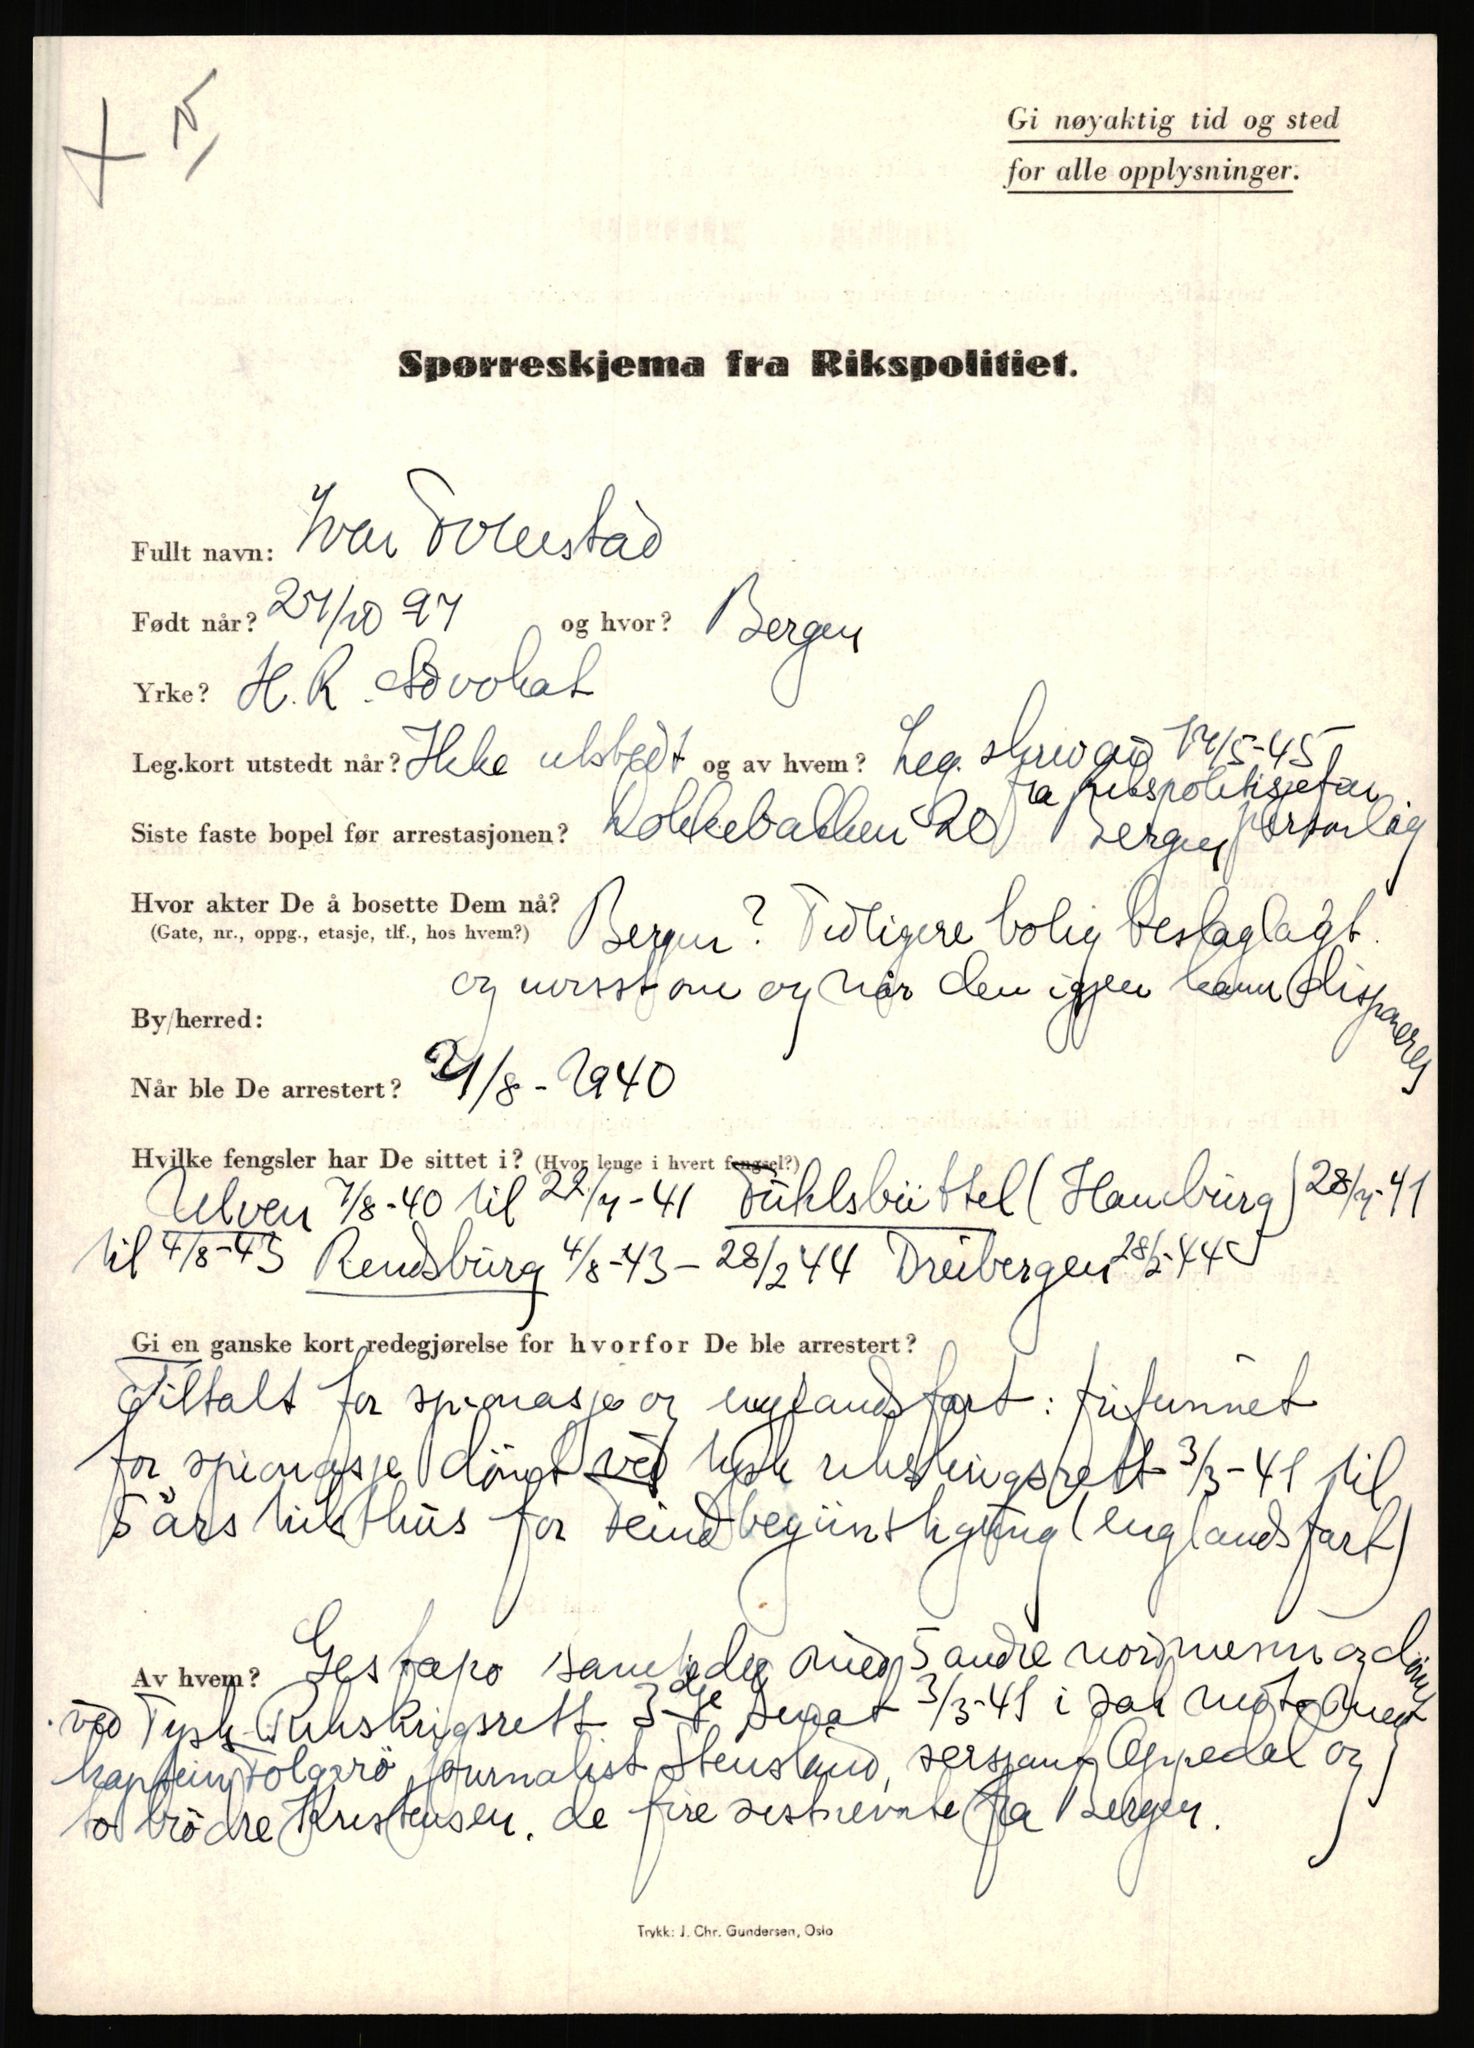 Gi nøyaktig tid og sted
for alle opplysninger.
Spørreskjema fra Rikspolitiet.
Fullt navn: Ivar
Født når? 27/10 97 og hvor? Bergen
Yrke? H. R. Advokat
Leg.kort utstedt når? Ikke utstedt og av hvem? Leg. skriv av 17/5-45
fra Rikspolitisjefen
Siste faste bopel før arrestasjonen? Dokkebakken 20 Bergen personlig
Hvor akter De å bosette Dem nå?
(Gate, nr., oppg., etasje, tlf., hos hvem?) Bergen? Tidligere bolig beslaglagt
og uvisst om og når den igjen kann disponeres
By/herred:
Når ble De arrestert? /8-1940
Hvilke fengsler har De sittet i? (Hvor lenge i hvert fengsel?)
Ulven 7/8-40 til 22/4-41 Fühlsbüttel (Hamburg) 28/4-41
til 4/8-43 Rendsburg 4/8-43 - 28/2 44 Dreibergen 28/2-44
Gi en ganske kort redegjørelse for hvorfor De ble arrestert?
Tiltalt for spionasje og englandsfart: frifunnet
for spionasje dömt ved tysk rikskrigsrett 3/3-41 til
5 års tukthus for Feindbegünstigung (englandsfart)
Av hvem? Gestapo samtidig med 5 andre nordmenn og dömt
ved Tysk Rikskrigsrett 3dje Senat 3/3-41 i sak mot meg
kaptein Folgerö journalist Stensland, sersjant Oppedal og
to brödre Kristensen. de fire sistnevnte fra Bergen.
Trykk: J. Chr. Gundersen, Oslo